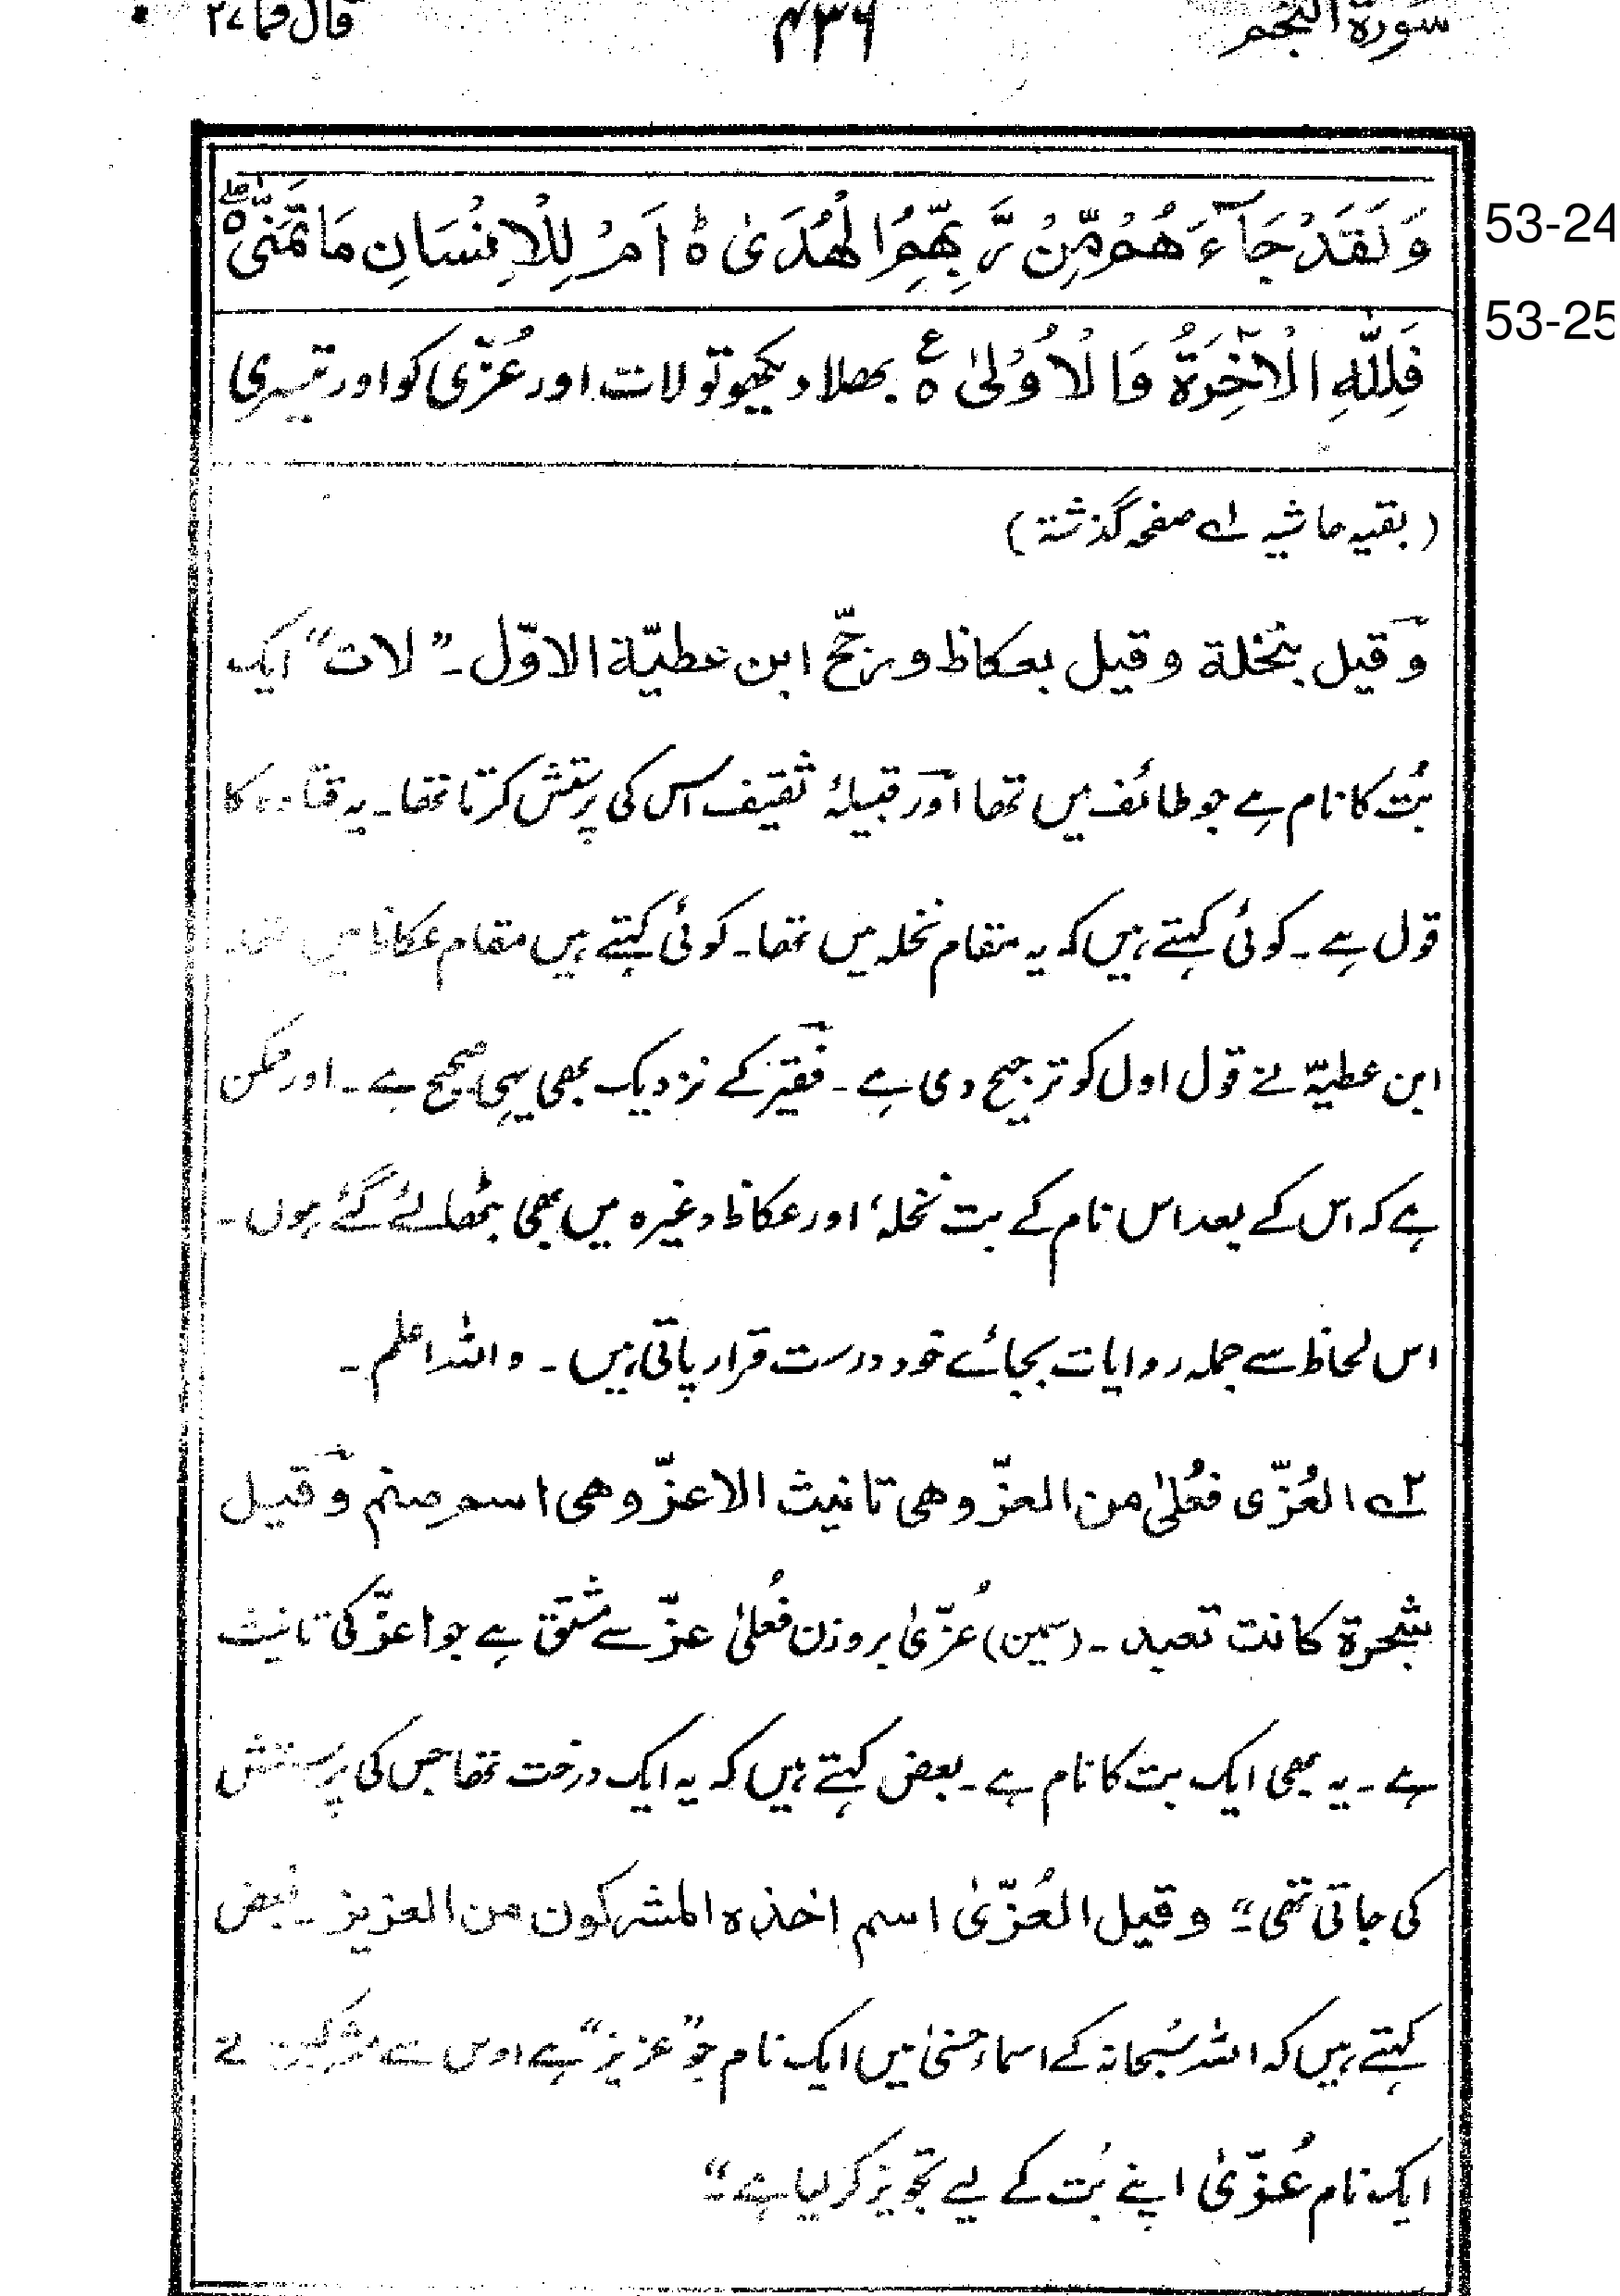 سورة النجم ۴۳۶ قال فما ۲۷
وَلَقَدْ جَآءَهُمْ مِّنْ رَّبِّهِمُ الْهُدٰى ۭ اَمْ لِلْاِنْسَانِ مَا تَمَنّٰى ۖ
53-24
فَلِلّٰهِ الْاٰخِرَةُ وَالْاُوْلٰى ۧ بھلا دیکھو تو لات اور عُزّٰی کو اور تیسری
53-25
(بقیہ حاشیہ ۱؎ صفحہ گذشتہ)
وقیل بنخلة وقیل بعکاظ ورجّح ابن عطیّة الاوّل۔ "لات" ایک
بُت کا نام ہے جو طائف میں تھا اور قبیلۂ ثقیف اس کی پرستش کرتا تھا۔ یہ قتادہ کا
قول ہے۔ کوئی کہتے ہیں کہ یہ مقام نخلہ میں تھا۔ کوئی کہتے ہیں مقام عکاظ میں تھا۔
ابن عطیّہ نے قول اول کو ترجیح دی ہے۔ فقیر کے نزدیک بھی یہی صحیح ہے۔ اور ممکن
ہے کہ اس کے بعد اس نام کے بت نخلہ، اور عکاظ وغیرہ میں بھی بٹھائے گئے ہوں۔
اس لحاظ سے جملہ روایات بجائے خود درست قرار پاتی ہیں۔ واللہ اعلم۔
۲؎ العُزّٰی فعُلیٰ من العزّ وھی تانیث الاعزّ وھی اسم صنم وقیل
شجرة کانت تعبد۔ (سمین) عُزّیٰ بروزن فُعلیٰ عزّ سے مشتق ہے جو اعزّ کی تانیث
ہے۔ یہ بھی ایک بت کا نام ہے۔ بعض کہتے ہیں کہ یہ ایک درخت تھا جس کی پرستش
کی جاتی تھی"۔ وقیل العُزّیٰ اسم اخذہ المشرکون من العزیز۔ بعض
کہتے ہیں کہ اللہ سُبحانہ کے اسماء حسنیٰ میں ایک نام جو "عزیز" ہے اوس سے مشرکین نے
ایک نام عُزّیٰ اپنے بُت کے لیے تجویز کر لیا ہے۔"